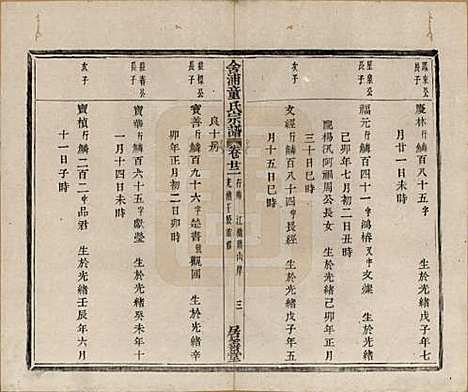 鳳來公
長子
慶林 行鱗百八十五 字　生於光緒戊子年七
月廿一日未時
星泉公
長子
福元 行鱗百四十一 鴻椿 字文燦　生於光緒
己卯年七月初二日丑時
楊樹汛阿福周公長女　生於光緒己卯年正月
三十日巳時
次子
文經 行鱗百八十四 字長經　生於光緒戊子年五
月十五日巳時
金浦童氏宗譜
卷廿二
行傳
三
居敬堂
良十房
長子
寶善 行鱗百九十六 字楚書 號觀國　生於光緒辛
卯年正月初二日卯時
桂春公
長子
寶華 行鱗百六十五 字獻瑩　生於光緒癸未年十
一月十四日未時
次子
寶楨 行鱗二百二 字品君　生於光緒壬辰年六月
十一日子時